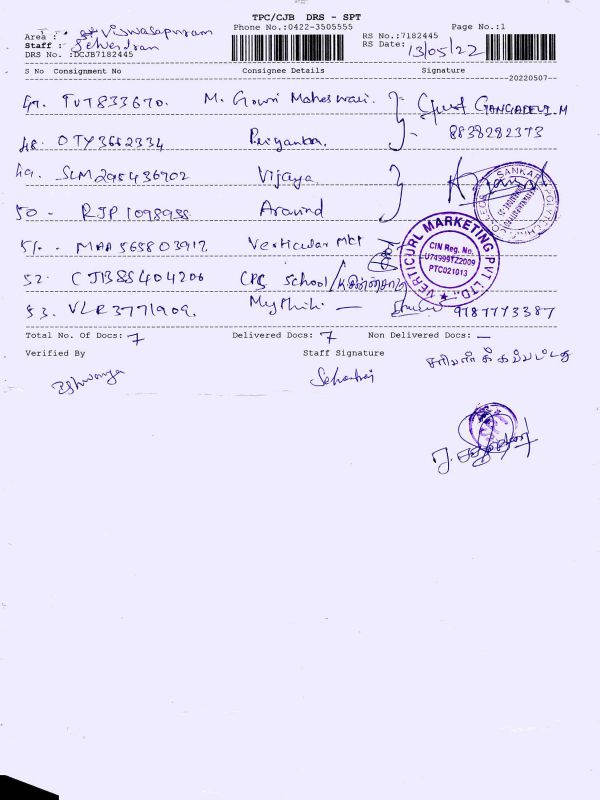 TPC/CJB DRS - SPT
Phone No.:0422-3505555 Page No.:1
Area : Viswasapuram RS No.:7182445
Staff : Selvendran RS Date: 13/05/22
DRS No. :DCJB7182445
S No Consignment No Consignee Details Signature
20220507
47. TUT833670. M. Gowri Maheswari. GANGADEVI.M
48. OTY3662334 Priyanka. 8838282373
49. SLM295436702 Vijaya
50 - RJP1098955 Aravind
51. - MAA565803912 Verticular Mkt
52. CJB85404206 CPS School /
53. VLR3771909. Mythili. — 9787773387
SANKARA POLYTECHNIC COLLEGE
VERTICURL MARKETING PVT LTD.
CIN Reg. No.
U74999TZ2009
PTC021013
Total No. Of Docs: 7 Delivered Docs: 7 Non Delivered Docs: —
Verified By Staff Signature